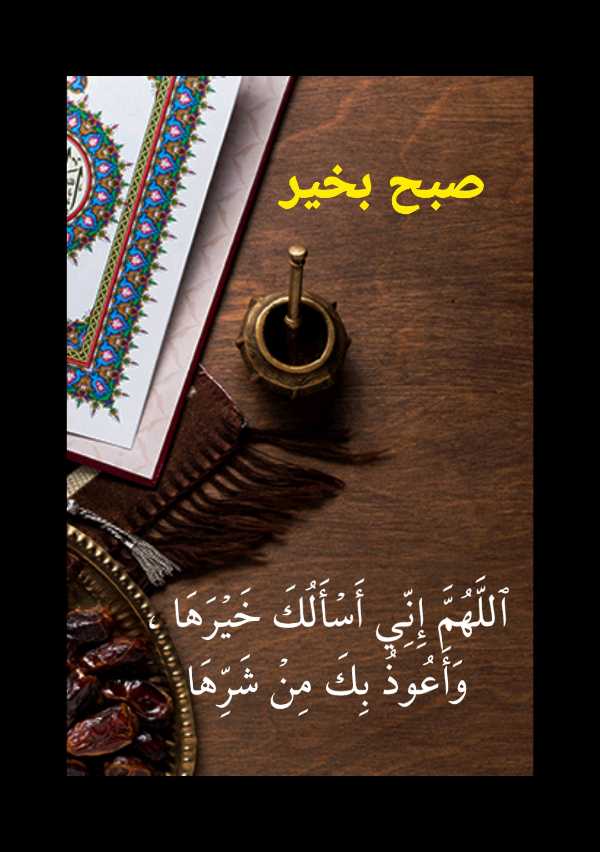 صبح بخير
ٱللَّهُمَّ إِنِّي أَسْأَلُكَ خَيْرَهَا ،
وَأَعُوذُ بِكَ مِنْ شَرِّهَا